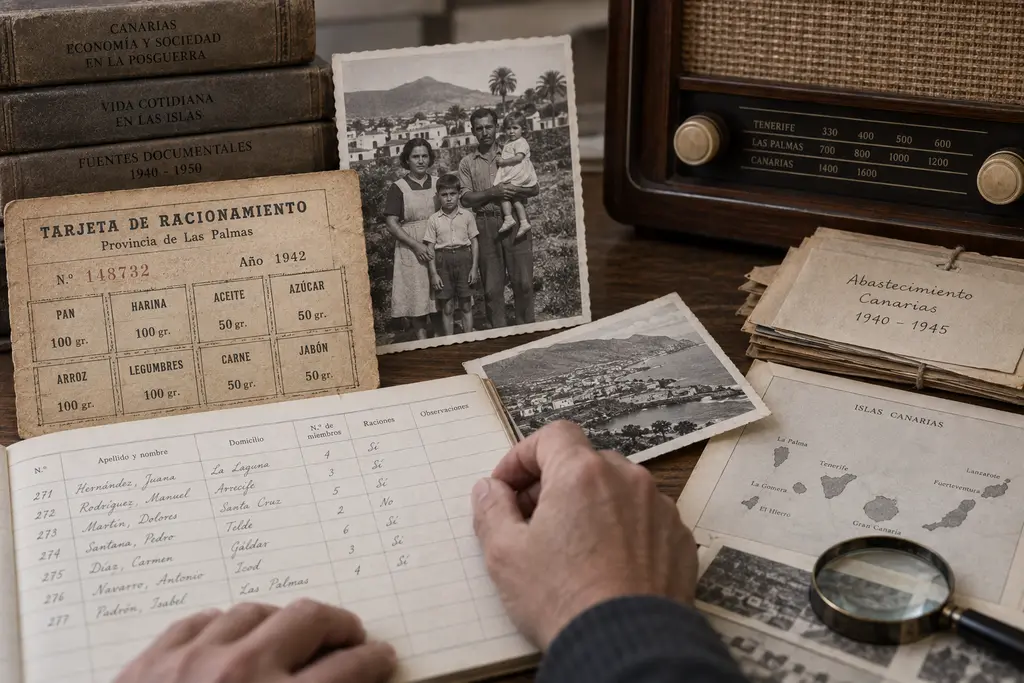 CANARIAS
ECONOMÍA Y SOCIEDAD
EN LA POSGUERRA
VIDA COTIDIANA
EN LAS ISLAS
FUENTES DOCUMENTALES
1940 - 1950
TARJETA DE RACIONAMIENTO
Provincia de Las Palmas
N.º 148732 Año 1942
PAN HARINA ACEITE AZÚCAR
100 gr. 100 gr. 50 gr. 50 gr.
ARROZ LEGUMBRES CARNE JABÓN
100 gr. 100 gr. 50 gr. 50 gr.
TENERIFE 330 400 500 600
LAS PALMAS 700 800 1000 1200
CANARIAS 1400 1600
Abastecimiento
Canarias
1940 - 1945
N.º Apellido y nombre Domicilio N.º de miembros Raciones Observaciones
271 Hernández, Juana La Laguna 4 Sí
272 Rodríguez, Manuel Arrecife 3 Sí
273 Martín, Dolores Santa Cruz 5 Sí
274 Santana, Pedro Telde 2 No
275 Díaz, Carmen Gáldar 6 Sí
276 Navarro, Antonio Icod 3 Sí
277 Padrón, Isabel Las Palmas 4 Sí
ISLAS CANARIAS
La Palma
Tenerife
Lanzarote
La Gomera
Fuerteventura
El Hierro
Gran Canaria